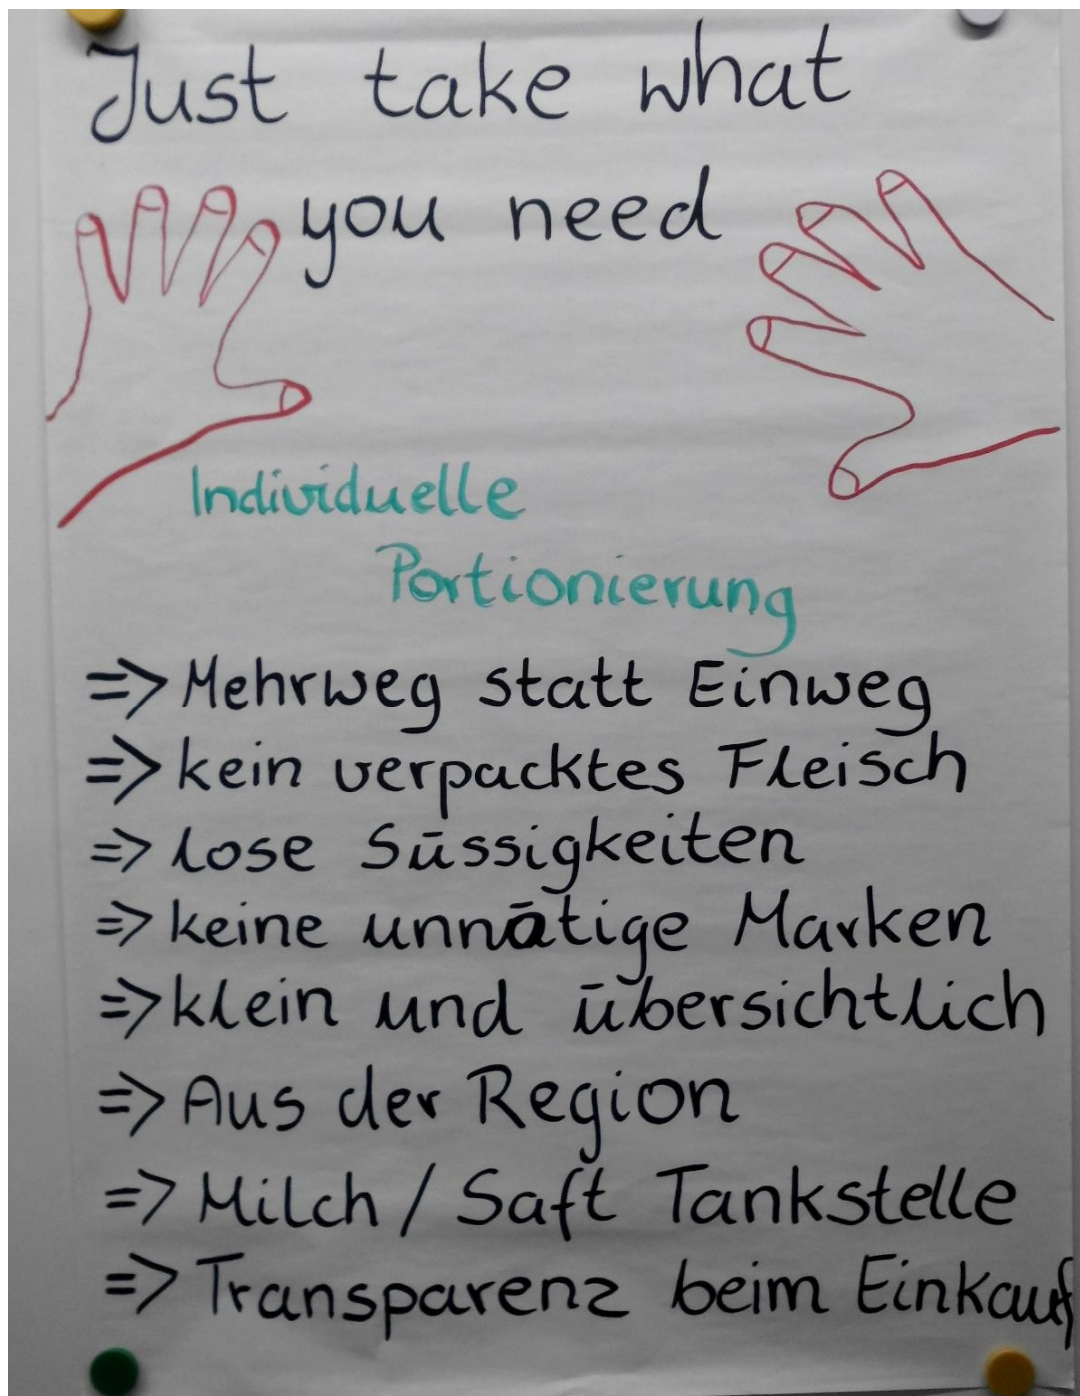 Just take what
you need
Individuelle
Portionierung
=> Mehrweg statt Einweg
=> kein verpacktes Fleisch
=> lose Süssigkeiten
=> keine unnötige Marken
=> klein und übersichtlich
=> Aus der Region
=> Milch / Saft Tankstelle
=> Transparenz beim Einkauf